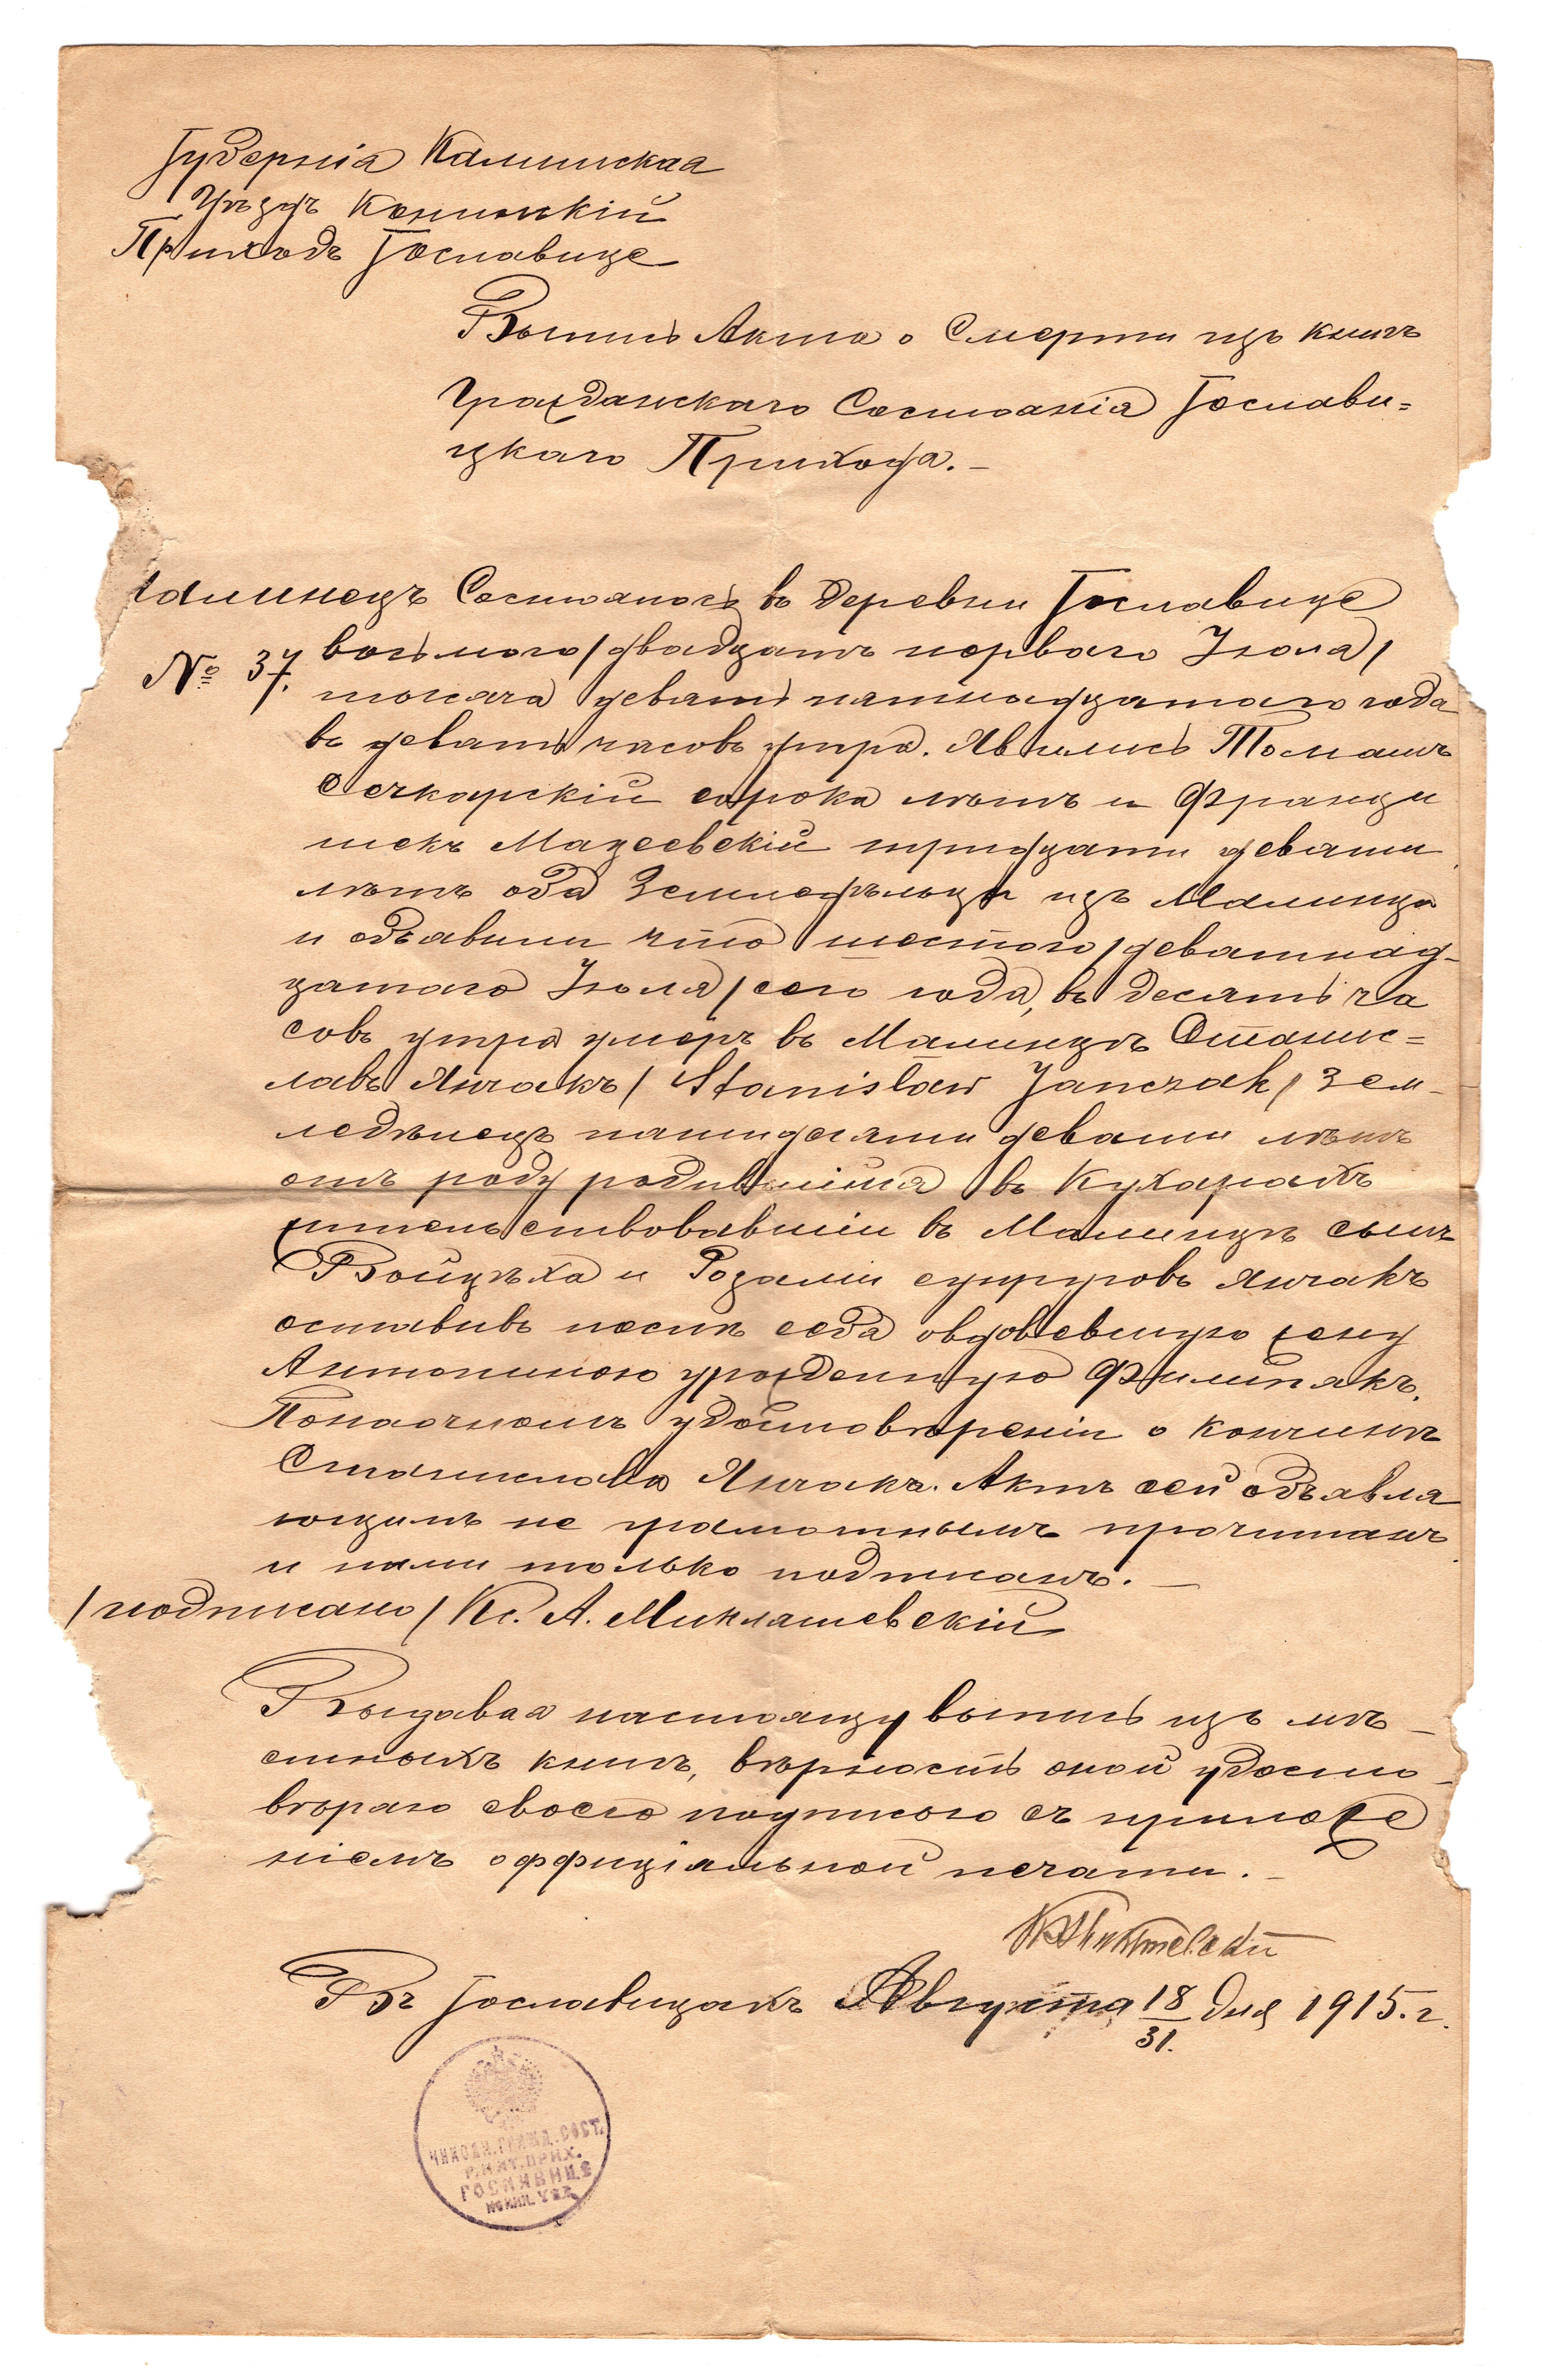 Губернія Калишская
Уѣздъ Конинскій
Приходъ Гославице
Выпись Акта о Смерти изъ книгъ
Гражданскаго Состоянія Гослави=
цкаго Прихода. –
алинецъ Состоялось въ деревни Гославице
№ 37. восьмого /двадцать перваго Іюля/
тысяча девять пятнадцатаго года
въ девять часовъ утра. Явились Томашъ
Сечкарскій сорока лѣтъ и Франци
шекъ Мацеевскій тридцати девяти
лѣтъ оба Земледѣльцы изъ Малинца
и объявили что шестого /девятнад-
цатаго Іюля/ сего года, въ десять ча
совъ утра умеръ въ Малинцѣ Станис=
лавъ Янчакъ /Stanisław Janczak/ Зем-
ледѣлецъ пятидесяти девяти лѣтъ
отъ роду родившійся въ Кухарахъ
жительствовавшій въ Малинцѣ сынъ
Войцѣха и Розаліи супруговъ Янчакъ
оставивъ послѣ себя овдовѣвшую жену
Антонину урожденную Филипякъ.
По наочномъ удостовѣреніи о кончинѣ
Станислава Янчакъ. Актъ сей объявля
ющимъ не грамотнымъ прочитанъ
и нами только подписанъ. –
/подписано/ Кс. А. Миклашевскій
Выдавая настоящу выпись изъ мѣ-
стныхъ книгъ, вѣрность оной удосто-
вѣряю своею подписью съ приложе
ніемъ оффиціяльной печати. –
Въ Гославицахъ Августа 18/31. дня 1915. г.
ЧИНОВН. ГРАЖД. СОСТ.
Р. КАТ. ПРИХ.
ГОСЛАВИЦЕ
КОНИН. УѢЗ.